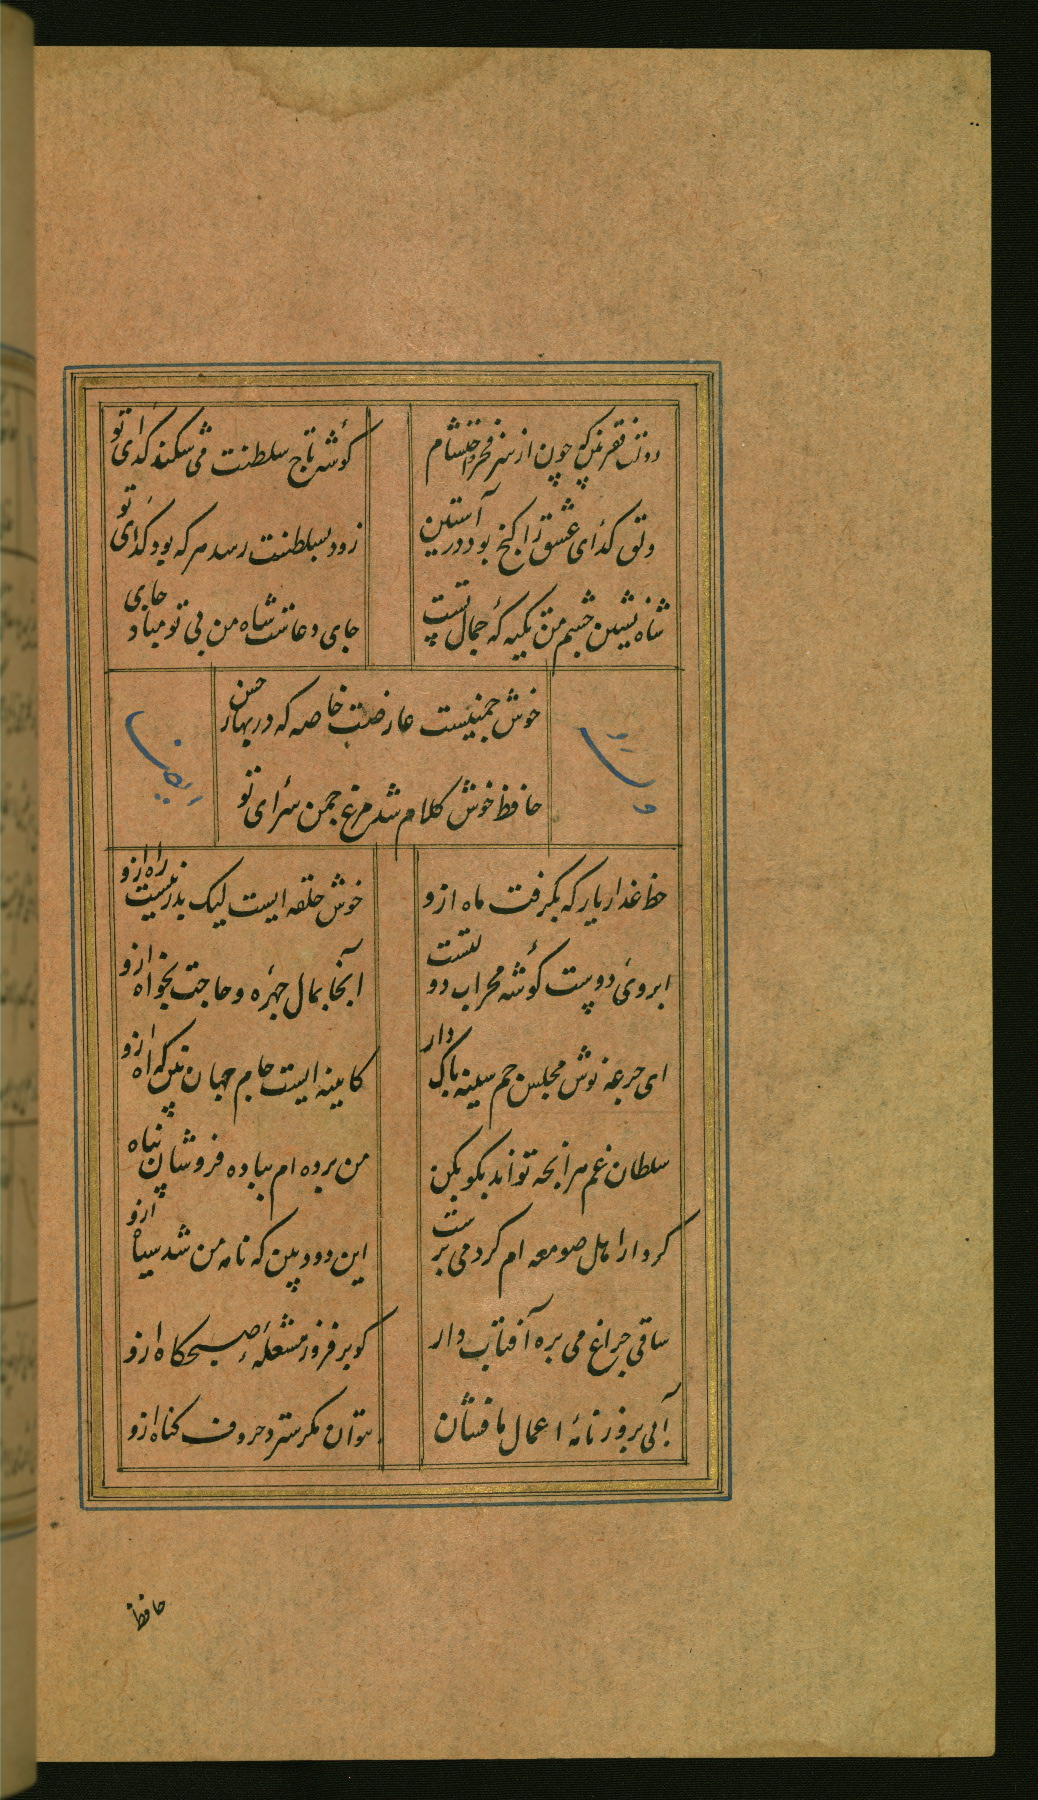 دولت فقر بین که چون از سر فخر و احتشام
گوشه تاج سلطنت می شکند گدای تو
دلق گدای عشق را گنج بود در آستین
زود بسلطنت رسد هر که بود گدای تو
شاه نشین چشم من تکیه گه جمال تست
جای دعاست شاه من بی تو مباد جای
خوش چمنیست عارضت خاصه که در بهار حسن
حافظ خوش کلام شد مرغ چمن سرای تو
وله
ایضا
خط عذار یار که بگرفت ماه ازو
خوش حلقه ایست لیک بدر نیست راه ازو
ابروی دوست گوشه محراب دولتست
آنجا بمال چهره و حاجت بخواه ازو
ای جرعه نوش مجلس جم سینه پاک دار
کایینه ایست جام جهان بین که آه ازو
سلطان غم هر آنچه تواند بگو بکن
من برده ام بباده فروشان پناه ازو
کردار اهل صومعه ام کرد می پرست
این دود بین که نامه من شد سیاه
ساقی چراغ می بره آفتاب دار
کو برفروز مشعله صبحگاه ازو
آبی بروزنامهٔ اعمال ما فشان
بتوان مگر سترد حروف گناه ازو
حافظ